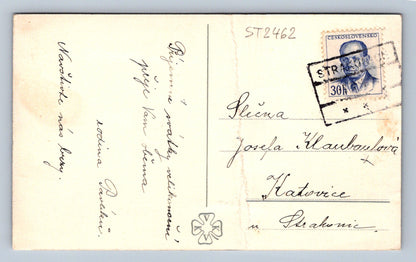 ST2462
ČESKOSLOVENSKO
30h
Příjemné svátky velikonoční
přeje Vám všema
rodina
Navštivte nás brzy.
Slečna
Josefa Klaubaulová
Katovice
u Strakonic
K K